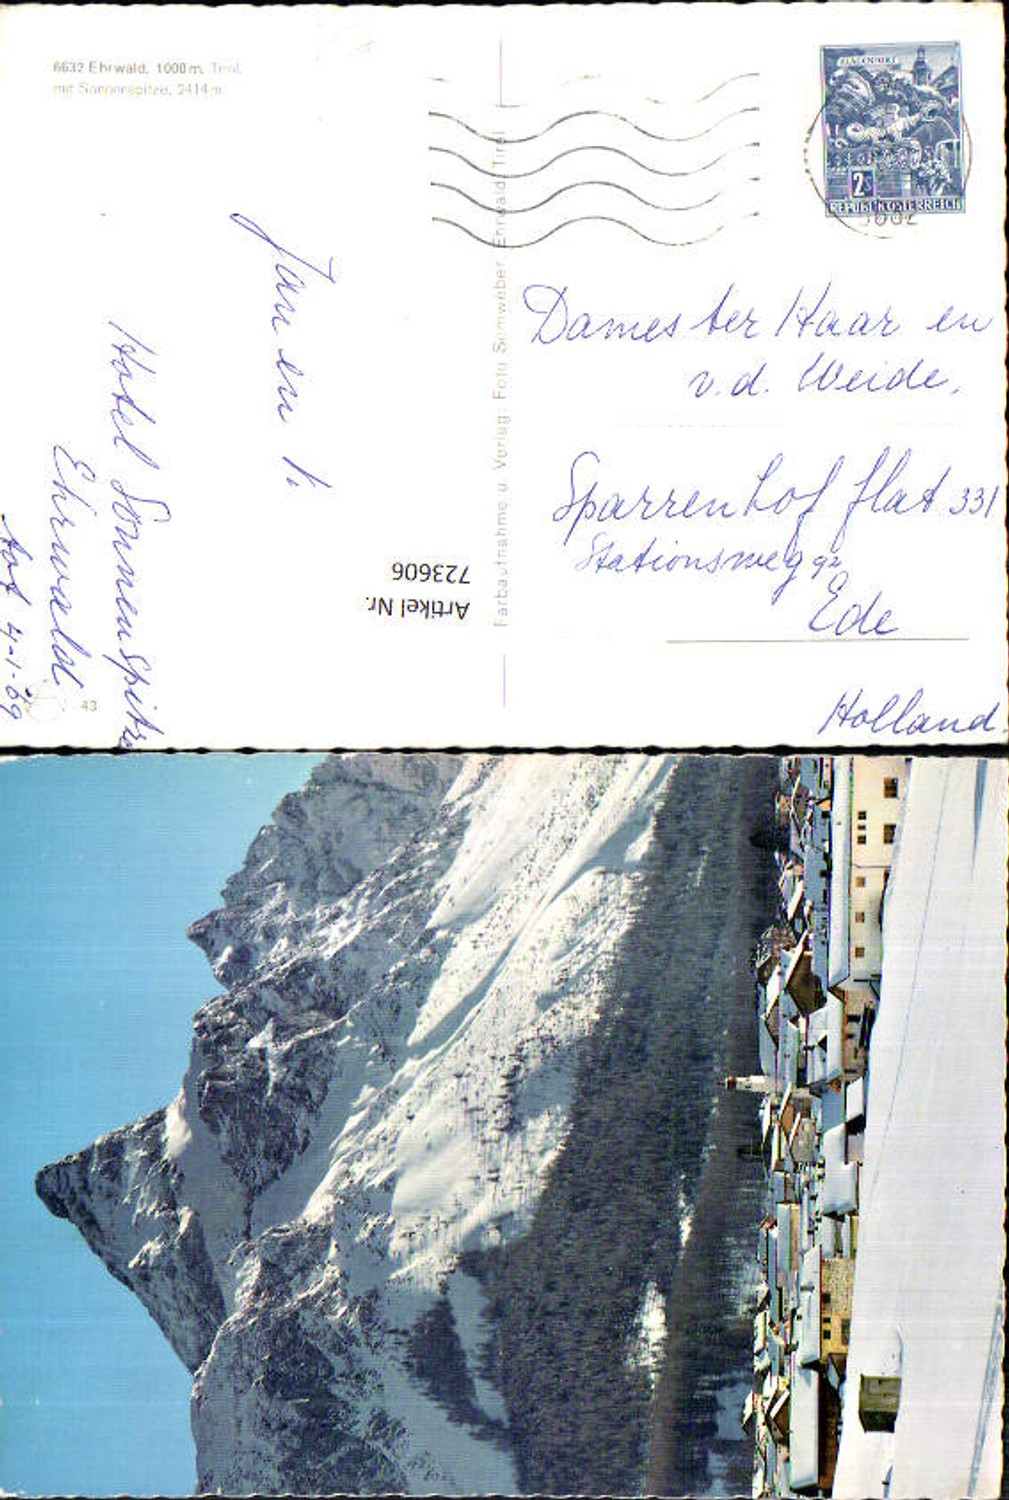 6632 Ehrwald, 1000 m, Tirol
mit Sonnenspitze, 2414 m
2 S
REPUBLIK ÖSTERREICH
Jan en
Hotel Sonnenspitze
Ehrwald
tot 4-1-69
43
Artikel Nr.
723606
Farbaufnahme u. Verlag: Foto Somweber, Ehrwald, Tirol
Dames ter Haar en
v.d. Weide,
Sparrenhof flat 331
Stationsweg 92
Ede
Holland.